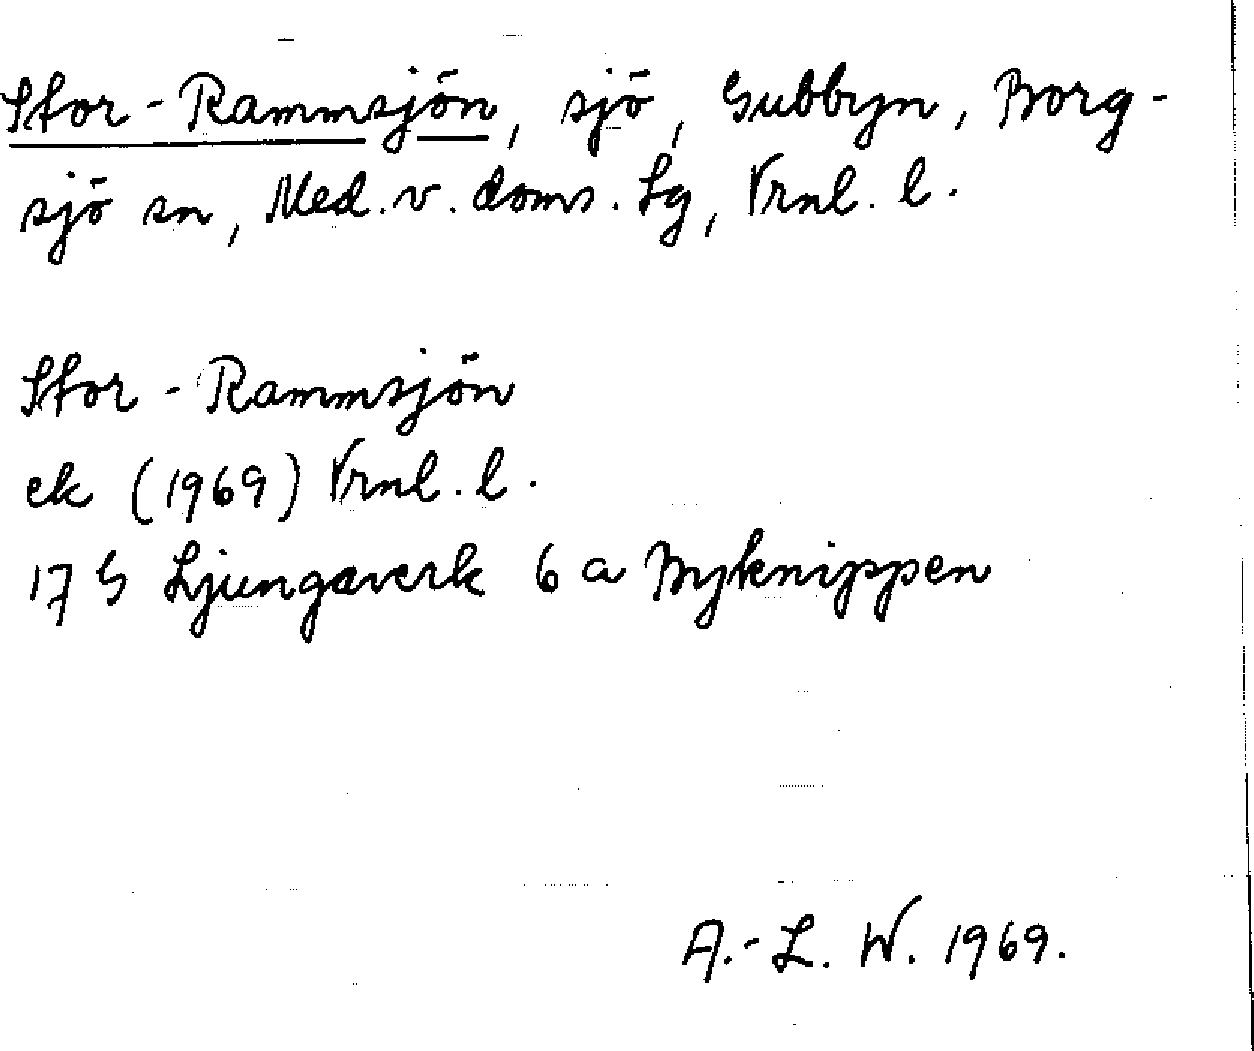 Stor-Rammsjön, sjö, Gubbyn, Borg-
sjö sn, Med. v. doms. lg, Vrnl. l.
Stor-Rammsjön
ek (1969) Vrnl. l.
17 G Ljungaverk 6 a Byknippen
A.-L. W. 1969.